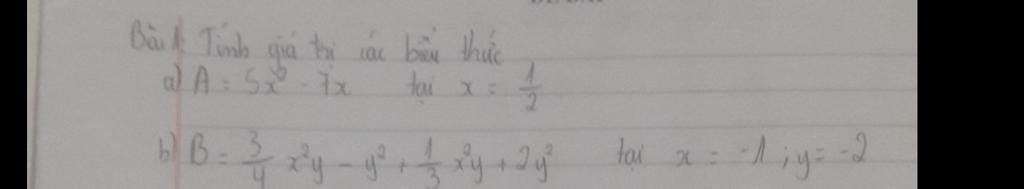 Bài 1: Tính giá trị các biểu thức
a) A = 5x² - 7x tại x = 1/2
b) B = 3/4 x²y - y² + 1/3 x²y + 2y² tại x = -1 ; y = -2